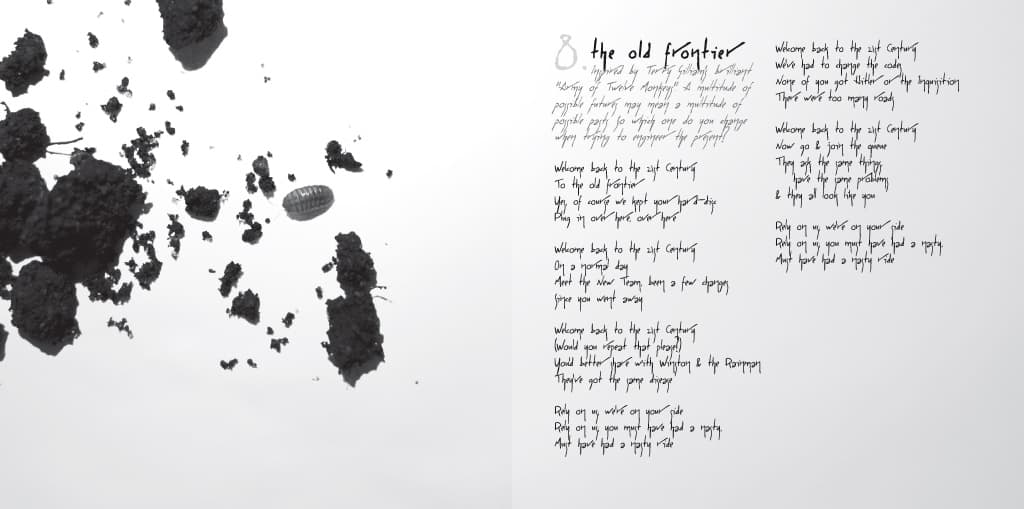 8. the old frontier
Inspired by Terry Gilliam's brilliant
"Army of Twelve Monkeys" A multitude of
possible futures may mean a multitude of
possible pasts, so which one do you change
when trying to engineer the present?
Welcome back to the 21st Century
To the old frontier
Yes, of course we kept your hard-disc
Plug in over here, over here
Welcome back to the 21st Century
On a normal day
Meet the New Team, been a few changes
Since you went away
Welcome back to the 21st Century
(Would you repeat that please?)
You'd better share with Winston & the Rainman
They've got the same disease
Rely on us, we're on your side
Rely on us, you must have had a nasty,
Must have had a nasty ride
Welcome back to the 21st Century
We've had to change the code
None of you got Hitler or the Inquisition
There were too many roads
Welcome back to the 21st Century
Now go & join the queue
They ask the same things,
have the same problems
& they all look like you
Rely on us, we're on your side
Rely on us, you must have had a nasty,
Must have had a nasty ride